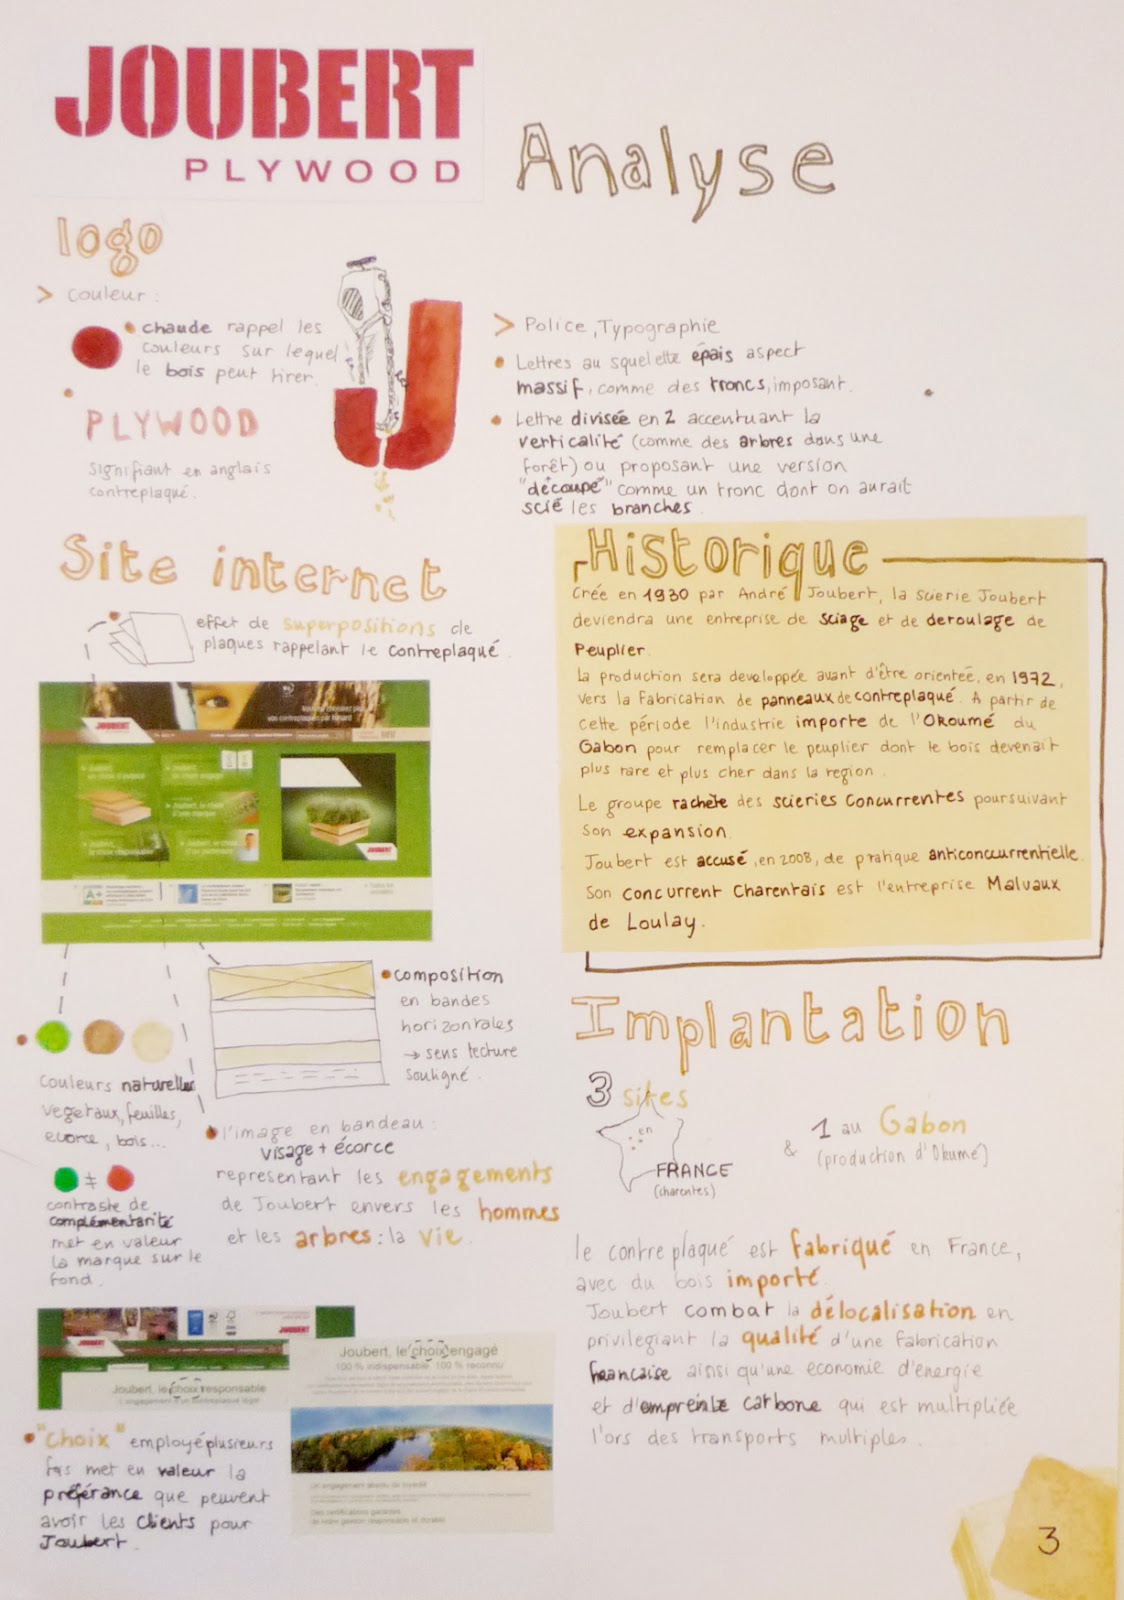 JOUBERT
PLYWOOD
Analyse
logo
> Couleur :
chaude rappel les
couleurs sur lequel
le bois peut tirer.
PLYWOOD
signifiant en anglais
contreplaqué.
> Police, Typographie
Lettres au squelette épais aspect
massif, comme des troncs, imposant.
Lettre divisée en 2 accentuant la
verticalité (comme des arbres dans une
forêt) ou proposant une version
"découpé" comme un tronc dont on aurait
scié les branches.
Site internet
effet de superpositions de
plaques rappelant le contreplaqué.
JOUBERT
JOUBERT
composition
en bandes
horizontales
→ sens lecture
souligné.
Couleurs naturelles
vegetaux, feuilles,
ecorce, bois...
≠
contraste de
complémentarité
met en valeur
la marque sur le
fond.
l'image en bandeau :
visage + écorce
representant les engagements
de Joubert envers les hommes
et les arbres : la vie.
JOUBERT
JOUBERT
Joubert, le choix responsable
Joubert, le choix engagé
100 % indispensable, 100 % reconnu
"choix" employé plusieurs
fois met en valeur la
préférance que peuvent
avoir les clients pour
Joubert.
Historique
Crée en 1930 par André Joubert, la scierie Joubert
deviendra une entreprise de sciage et de deroulage de
Peuplier.
La production sera developpée avant d'être orientée, en 1972,
vers la fabrication de panneaux de contreplaqué. A partir de
cette période l'industrie importe de l'Okoumé du
Gabon pour remplacer le peuplier dont le bois devenait
plus rare et plus cher dans la region.
Le groupe rachète des scieries concurrentes poursuivant
son expansion.
Joubert est accusé, en 2008, de pratique anticoncurrentielle.
Son concurrent Charentais est l'entreprise Malvaux
de Loulay.
Implantation
3 sites
en
FRANCE
(charentes)
& 1 au Gabon
(production d'Okumé)
le contreplaqué est fabriqué en France,
avec du bois importé.
Joubert combat la délocalisation en
privilegiant la qualité d'une fabrication
francaise ainsi qu'une economie d'energie
et d'empreinte carbone qui est multipliée
l'ors des transports multiples.
3